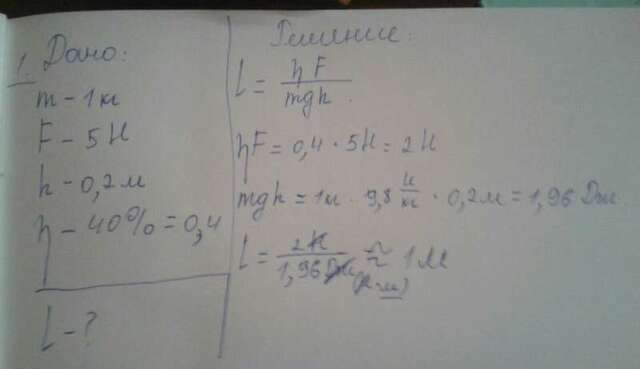 1. Дано:
m - 1 кг
F - 5 Н
h - 0,2 м
η - 40% = 0,4
L - ?
Решение:
L = ηF / mgh.
ηF = 0,4 · 5Н = 2 Н
mgh = 1кг · 9,8 Н/кг · 0,2м = 1,96 Дж
L = 2Н / 1,96 Дж (Н·м) ≈ 1м